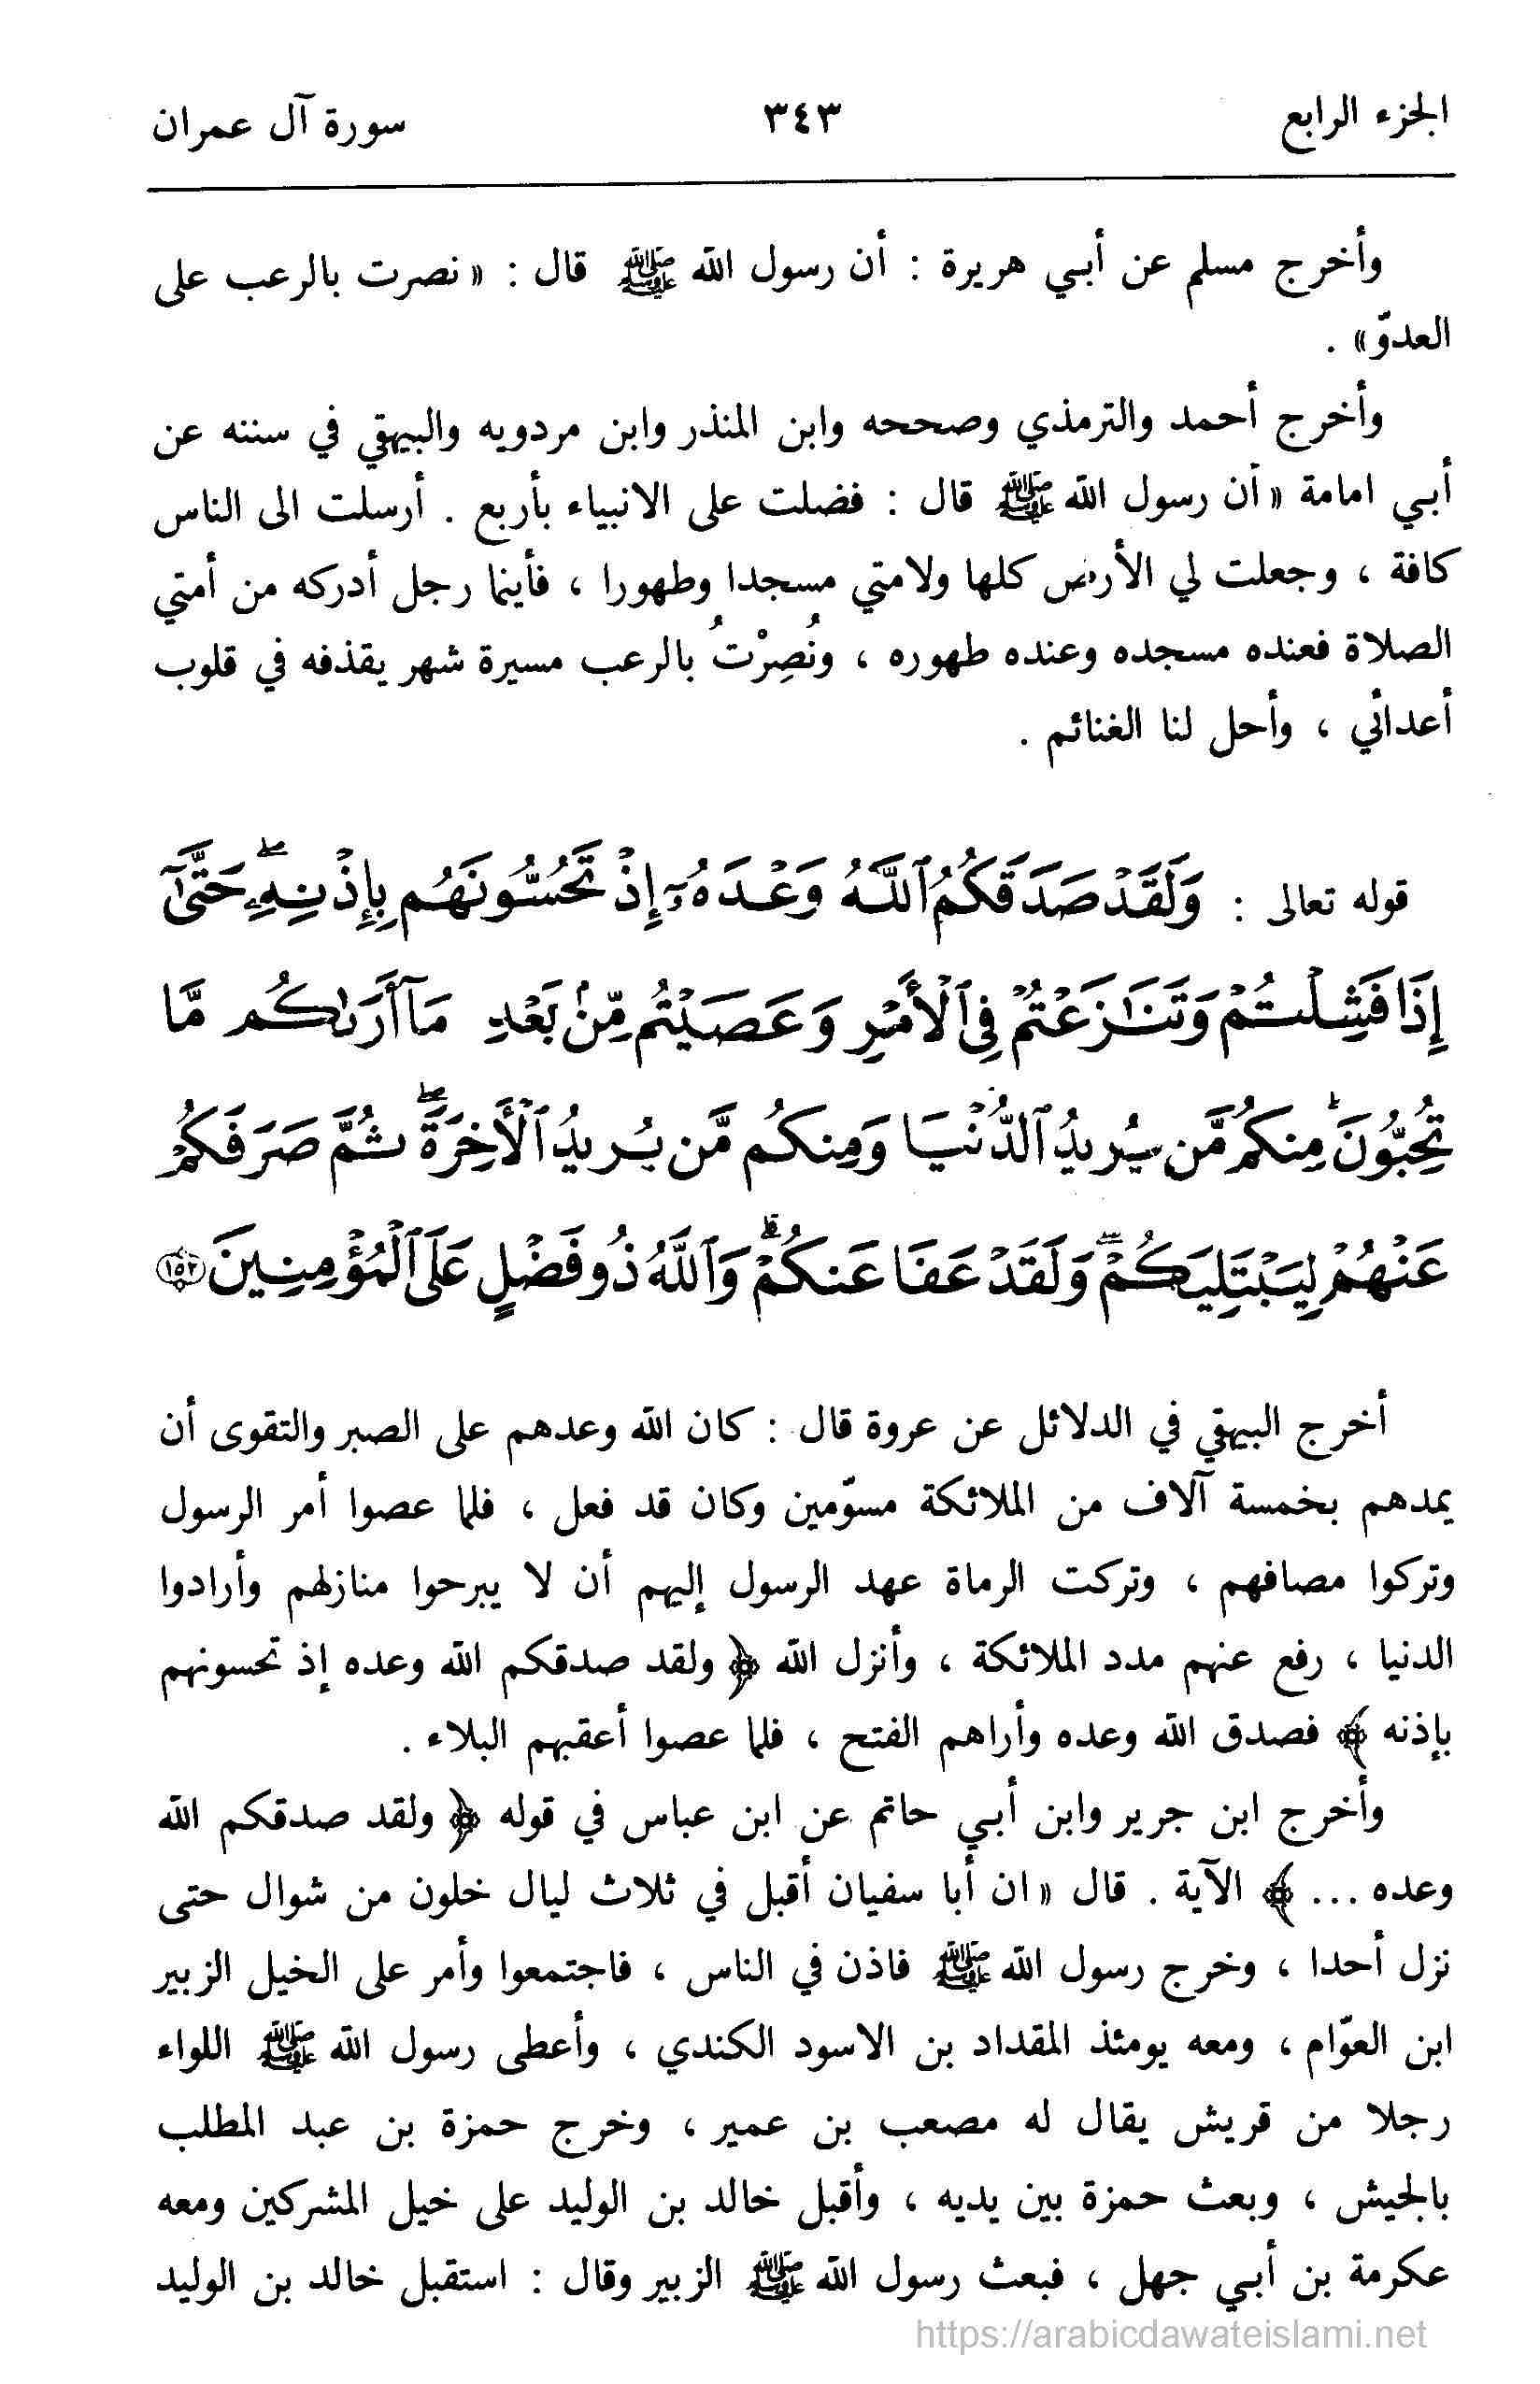 الجزء الرابع ٣٤٣ سورة آل عمران
وأخرج مسلم عن أبي هريرة : أن رسول الله ﷺ قال : « نصرت بالرعب على
العدوّ» .
وأخرج أحمد والترمذي وصححه وابن المنذر وابن مردويه والبيهقي في سننه عن
أبي امامة « أن رسول الله ﷺ قال : فضلت على الانبياء بأربع . أرسلت الى الناس
كافة ، وجعلت لي الأرض كلها ولامتي مسجدا وطهورا ، فأينما رجل أدركه من أمتي
الصلاة فعنده مسجده وعنده طهوره ، ونُصِرْتُ بالرعب مسيرة شهر يقذفه في قلوب
أعدائي ، وأحل لنا الغنائم .
قوله تعالى : وَلَقَدْ صَدَقَكُمُ ٱللَّهُ وَعْدَهُۥٓ إِذْ تَحُسُّونَهُم بِإِذْنِهِۦۖ حَتَّىٰٓ
إِذَا فَشِلْتُمْ وَتَنَٰزَعْتُمْ فِى ٱلْأَمْرِ وَعَصَيْتُم مِّنۢ بَعْدِ مَآ أَرَىٰكُم مَّا
تُحِبُّونَۚ مِنكُم مَّن يُرِيدُ ٱلدُّنْيَا وَمِنكُم مَّن يُرِيدُ ٱلْأَخِرَةَۖ ثُمَّ صَرَفَكُمْ
عَنْهُمْ لِيَبْتَلِيَكُمْۖ وَلَقَدْ عَفَا عَنكُمْۗ وَٱللَّهُ ذُو فَضْلٍ عَلَى ٱلْمُؤْمِنِينَ ١٥٢
أخرج البيهقي في الدلائل عن عروة قال : كان الله وعدهم على الصبر والتقوى أن
يمدهم بخمسة آلاف من الملائكة مسوّمين وكان قد فعل ، فلما عصوا أمر الرسول
وتركوا مصافهم ، وتركت الرماة عهد الرسول إليهم أن لا يبرحوا منازلهم وأرادوا
الدنيا ، رفع عنهم مدد الملائكة ، وأنزل الله ﴿ ولقد صدقكم الله وعده إذ تحسونهم
بإذنه ﴾ فصدق الله وعده وأراهم الفتح ، فلما عصوا أعقبهم البلاء .
وأخرج ابن جرير وابن أبي حاتم عن ابن عباس في قوله ﴿ ولقد صدقكم الله
وعده ... ﴾ الآية . قال « ان أبا سفيان أقبل في ثلاث ليال خلون من شوال حتى
نزل أحدا ، وخرج رسول الله ﷺ فاذن في الناس ، فاجتمعوا وأمر على الخيل الزبير
ابن العوّام ، ومعه يومئذ المقداد بن الاسود الكندي ، وأعطى رسول الله ﷺ اللواء
رجلا من قريش يقال له مصعب بن عمير ، وخرج حمزة بن عبد المطلب
بالجيش ، وبعث حمزة بين يديه ، وأقبل خالد بن الوليد على خيل المشركين ومعه
عكرمة بن أبي جهل ، فبعث رسول الله ﷺ الزبير وقال : استقبل خالد بن الوليد
https://arabicdawateislami.net